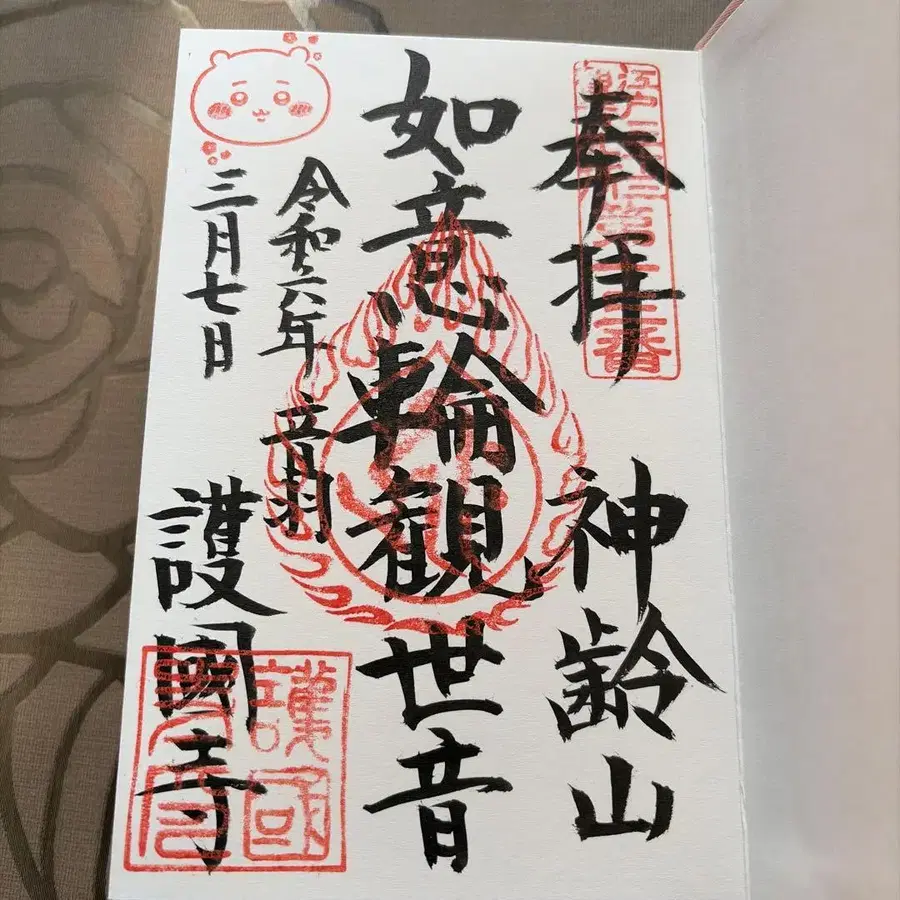 奉拝
神齢山
如意輪観世音
令和六年
三月七日
音羽
護國寺
護國